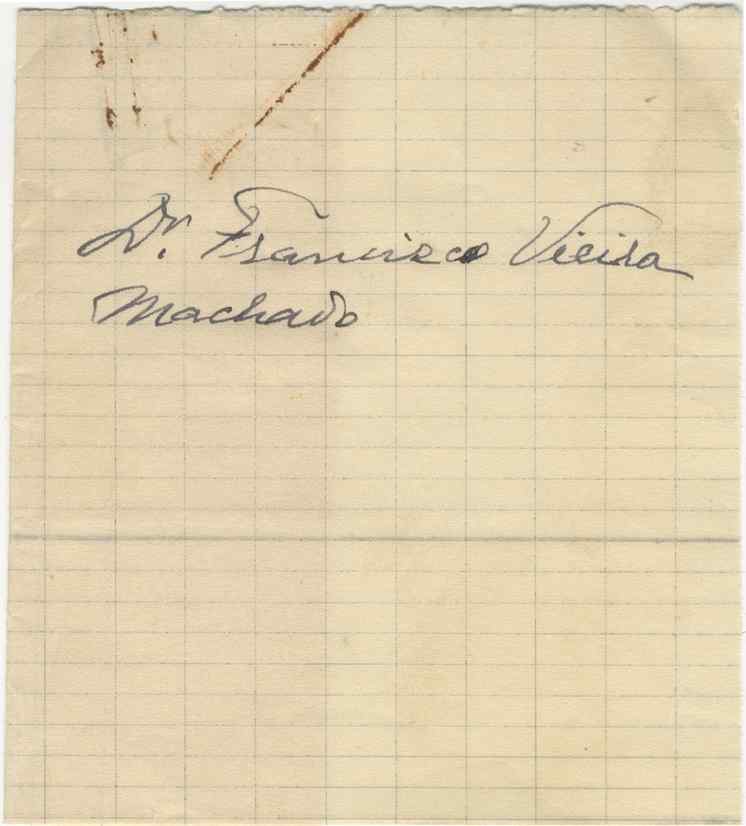 Dr. Francisco Vieira
Machado